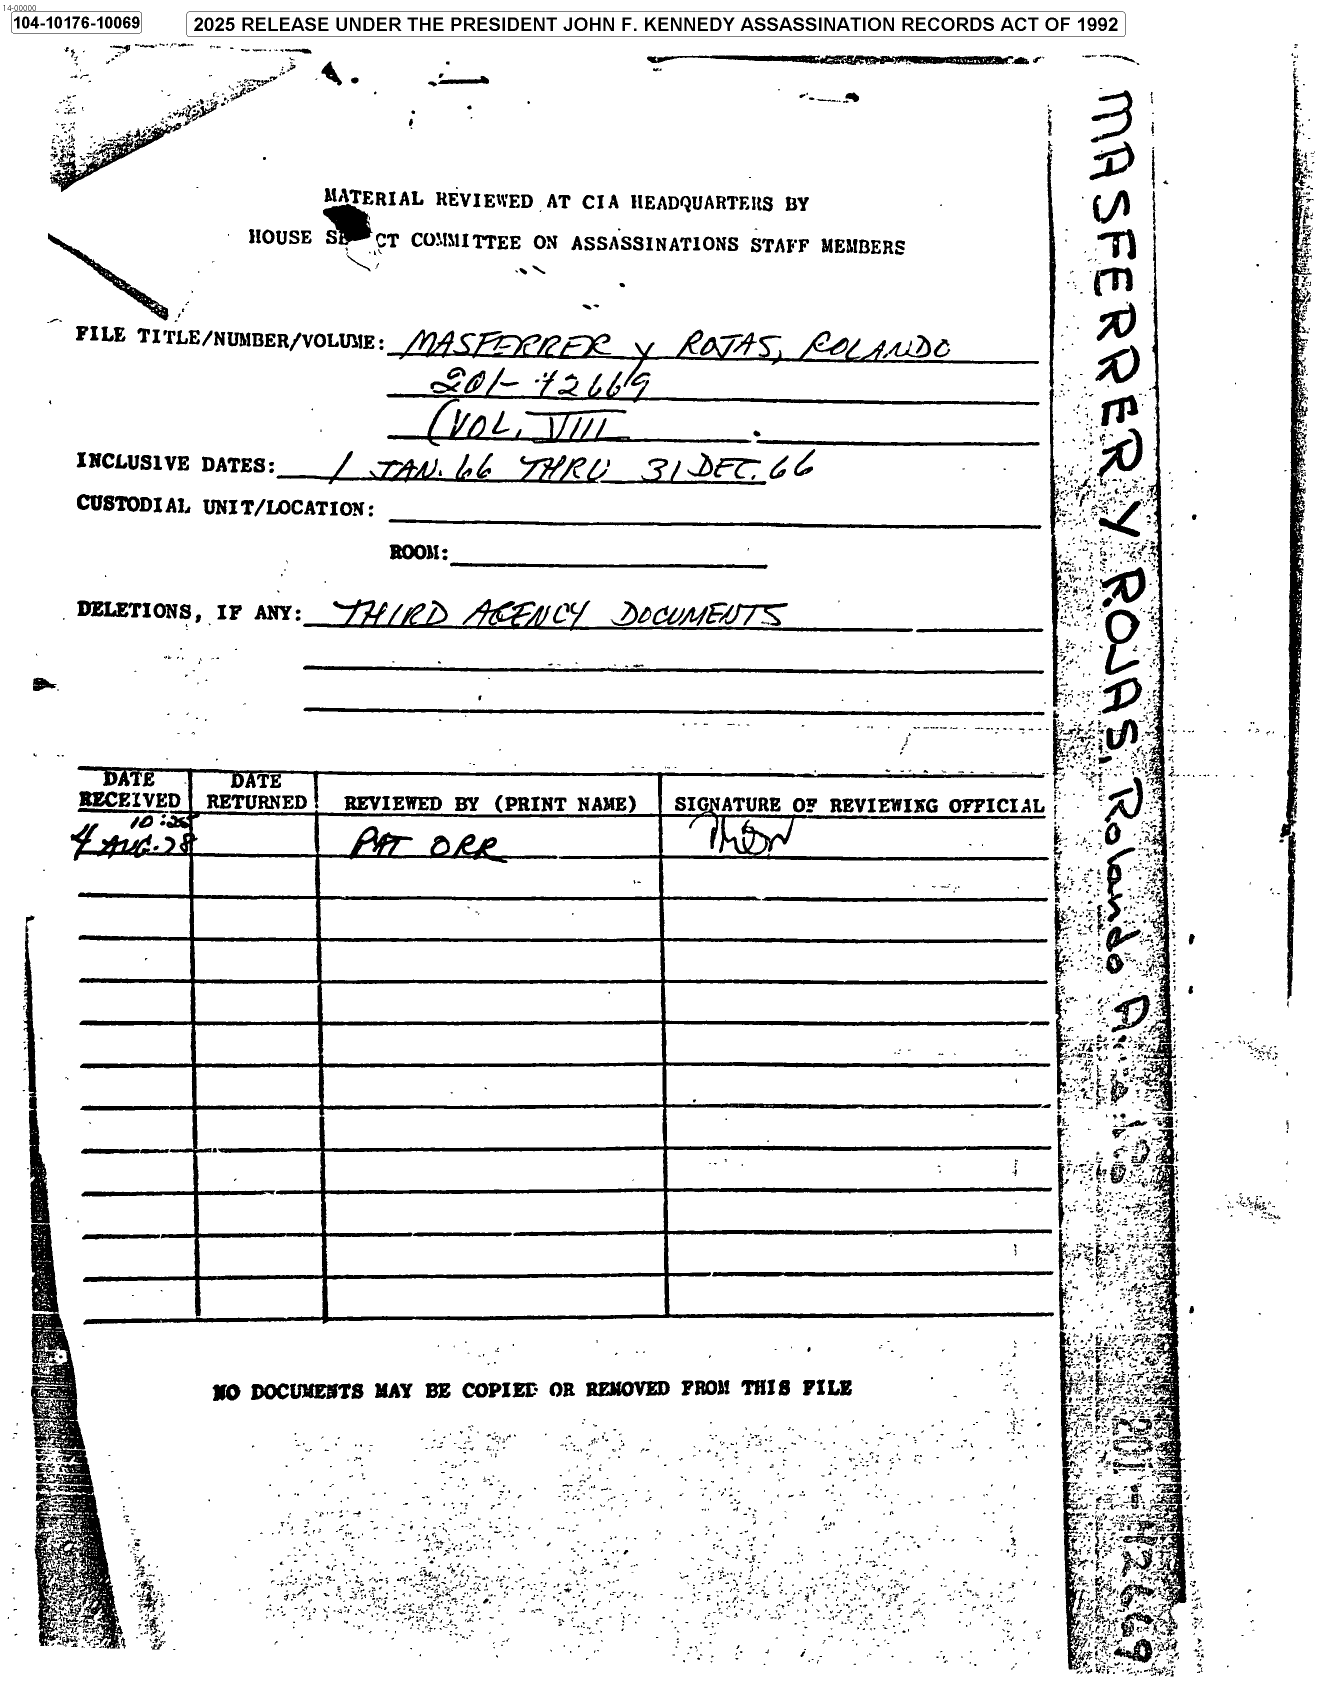 14-00000
104-10176-10069
2025 RELEASE UNDER THE PRESIDENT JOHN F. KENNEDY ASSASSINATION RECORDS ACT OF 1992
MATERIAL REVIEWED AT CIA HEADQUARTERS BY
HOUSE SE CT COMMITTEE ON ASSASSINATIONS STAFF MEMBERS
FILE TITLE/NUMBER/VOLUME: MASFERRER y ROJAS, ROLANDO
201-42669
(VOL, VIII
INCLUSIVE DATES: 1 JAN. 66 THRU 31 DEC. 66
CUSTODIAL UNIT/LOCATION:
ROOM:
DELETIONS, IF ANY: THIRD AGENCY DOCUMENTS
DATE RECEIVED DATE RETURNED REVIEWED BY (PRINT NAME) SIGNATURE OF REVIEWING OFFICIAL
4 AUG. 78 PAT ORR
NO DOCUMENTS MAY BE COPIED OR REMOVED FROM THIS FILE
MASFERRER y ROJAS, Rolando
201-42669